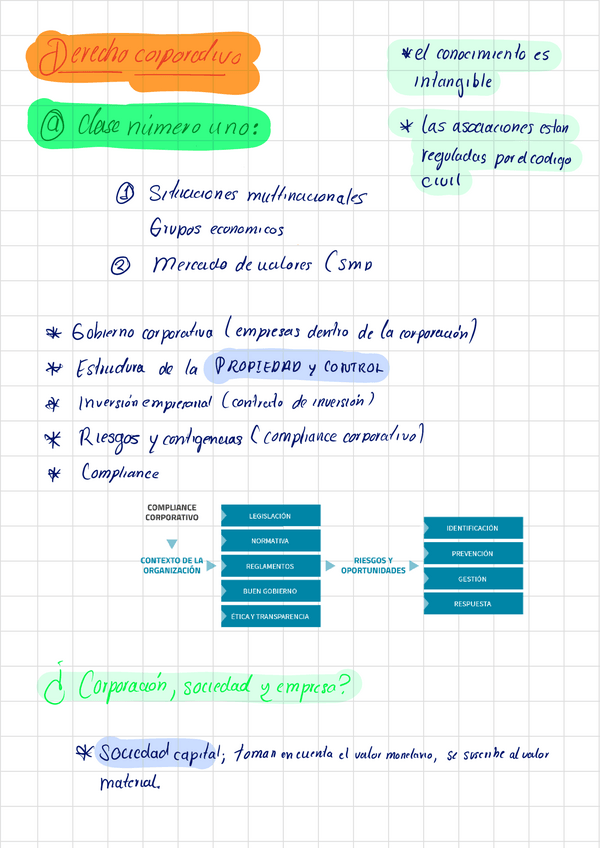 Derecho corporativo
@ Clase número uno:
* el conocimiento es
intangible
* las asociaciones estan
reguladas por el codigo
civil
① Situaciones multinacionales
Grupos economicos
② Mercado de valores (SMD
* Gobierno corporativo (empresas dentro de la corporación)
* Estructura de la PROPIEDAD y CONTROL
* Inversión empresarial (contrato de inversión)
* Riesgos y contigencias (compliance corporativo)
* Compliance
COMPLIANCE
CORPORATIVO
CONTEXTO DE LA
ORGANIZACIÓN
LEGISLACIÓN
NORMATIVA
REGLAMENTOS
BUEN GOBIERNO
ÉTICA Y TRANSPARENCIA
RIESGOS Y
OPORTUNIDADES
IDENTIFICACIÓN
PREVENCIÓN
GESTIÓN
RESPUESTA
¿ Corporación, sociedad y empresa?
* Sociedad capital; toman en cuenta el valor monetario, se suscribe al valor
material.